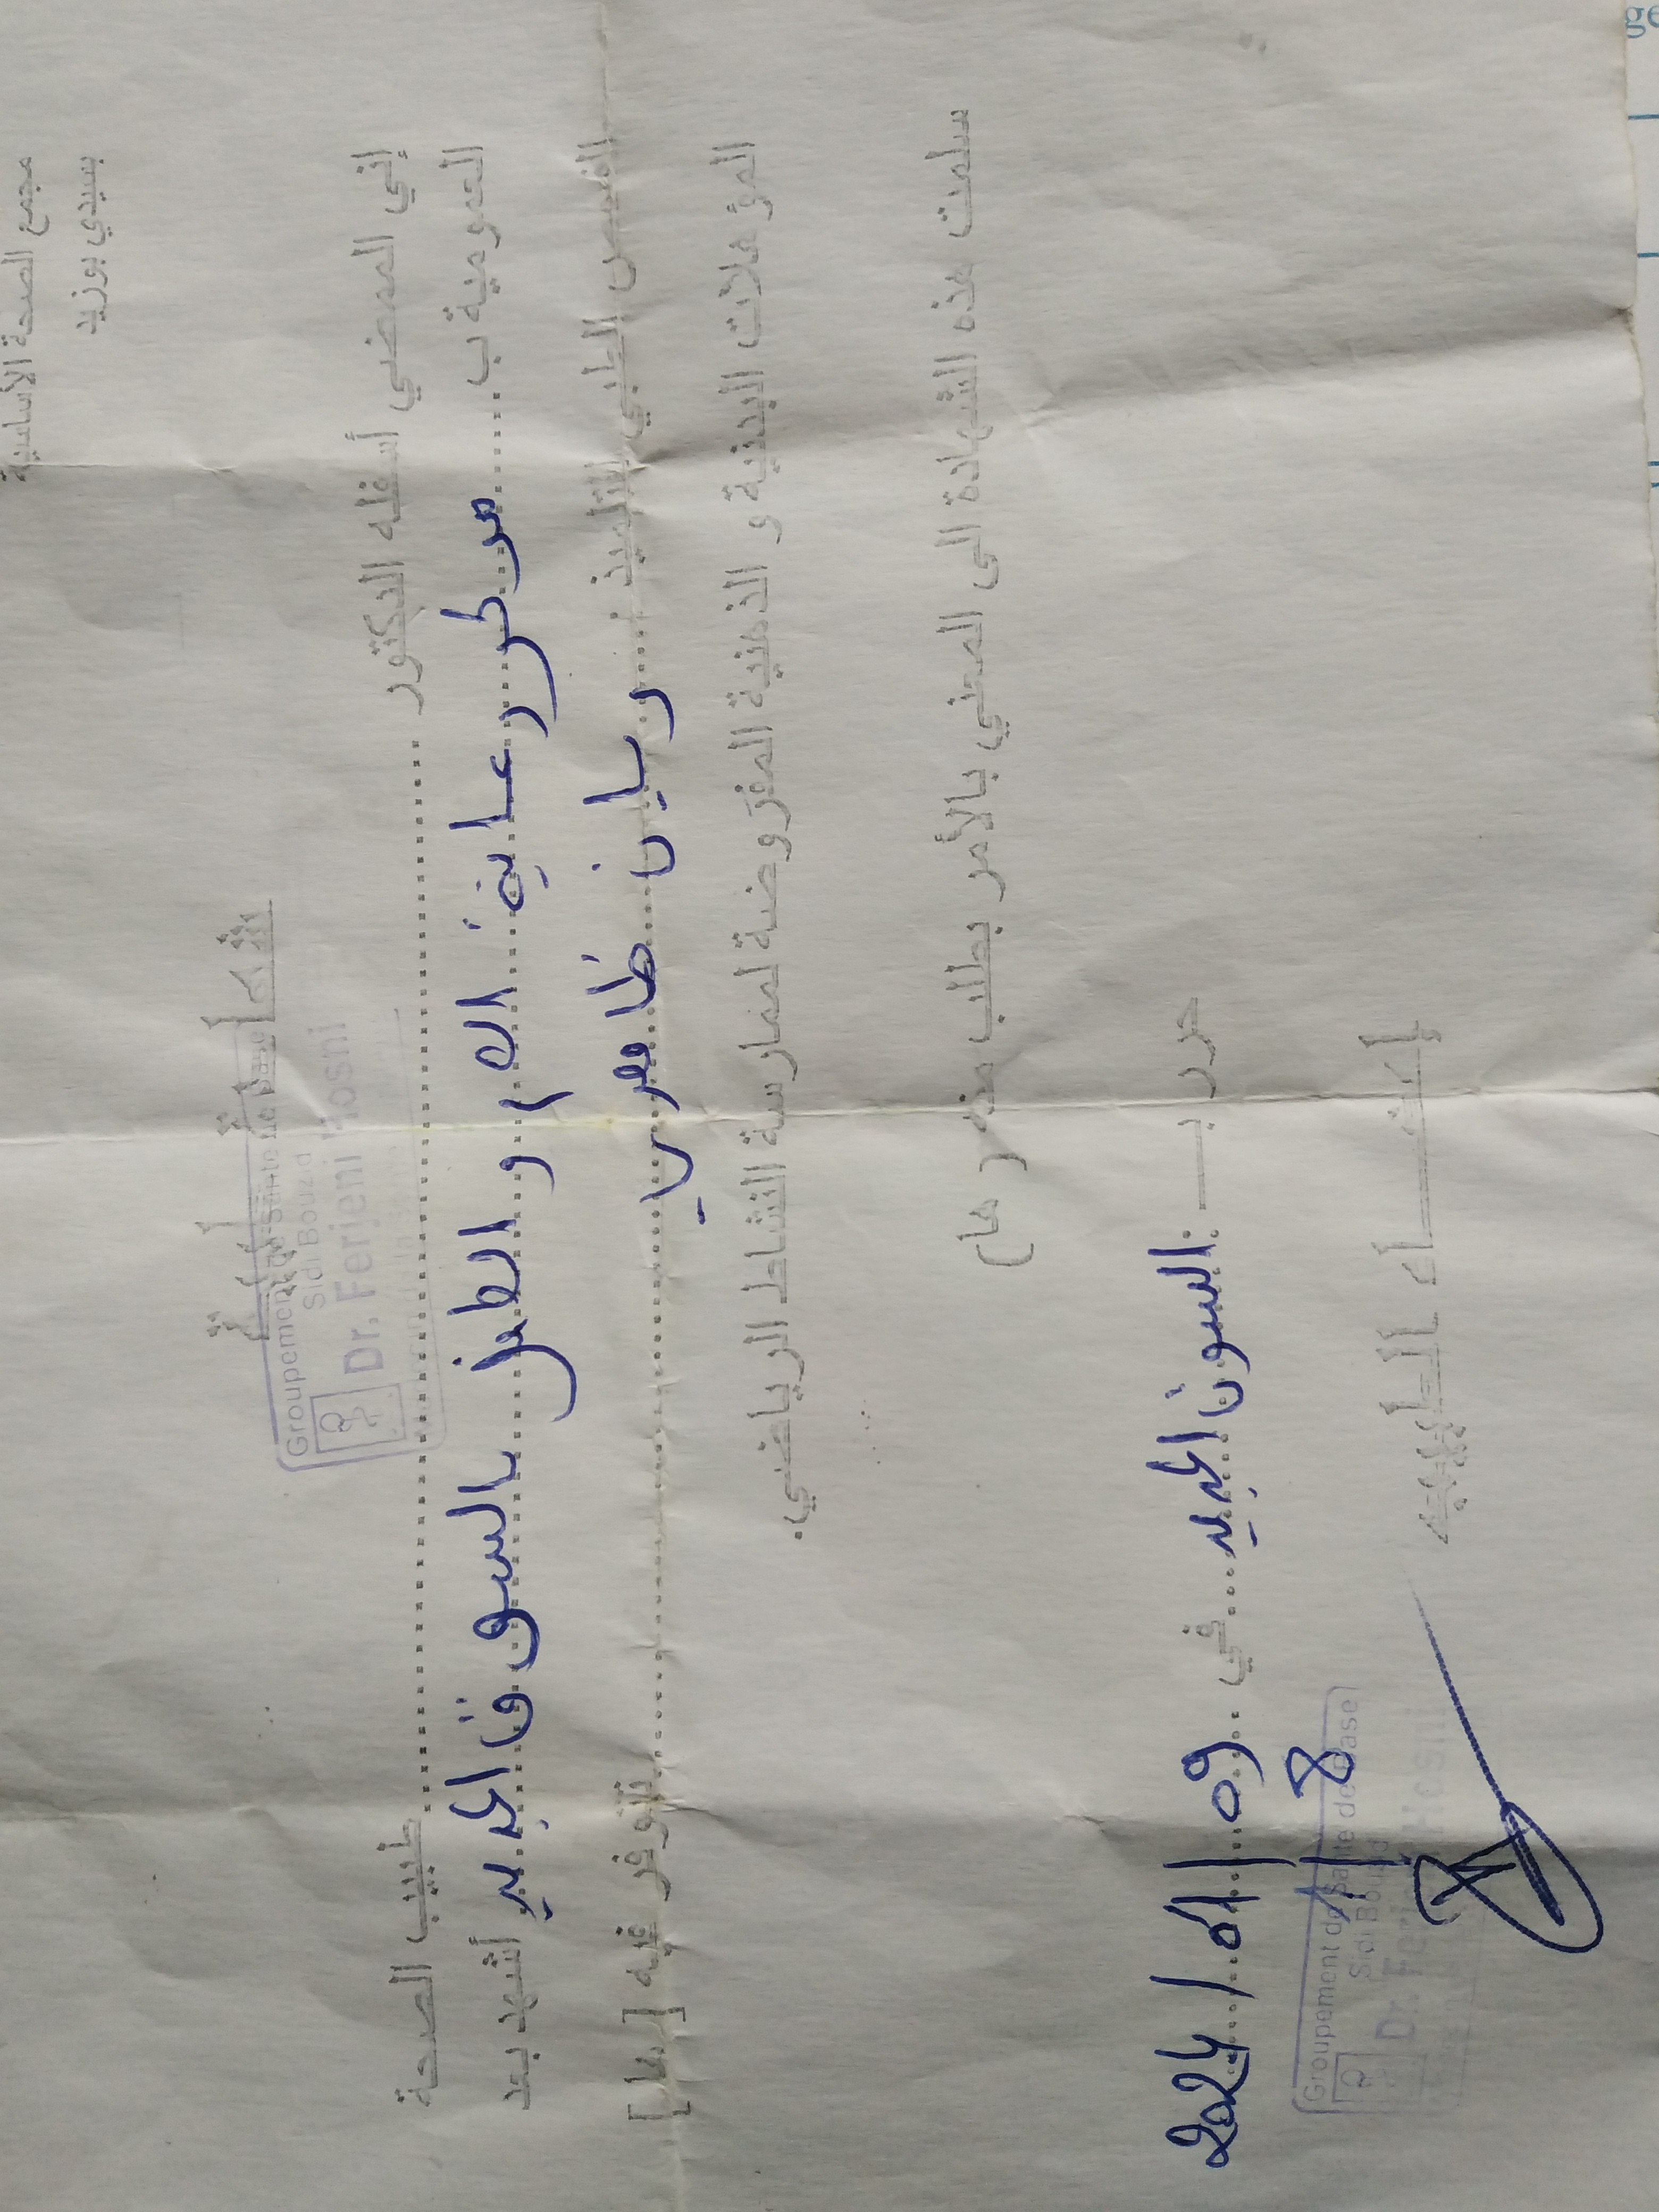 مجمع الصحة الأساسية
بسيدي بوزيد
شهادة طبية
Groupement de Santé de Base
Sidi Bouzid
Dr. Ferjeni Hosni
إني الممضي أسفله الدكتور ........ طبيب الصحة
العمومية ب ...... مركز رعاية الام و الطفل بالسوق الجديد أشهد بعد
الفحص الطبي للتلميذ : .... ريان ظاهري ........ تتوفر فيه [ها]
المؤهلات البدنية و الذهنية المفروضة لممارسة النشاط الرياضي.
سلمت هذه الشهادة الى المعني بالأمر بطلب منه (ها)
حرر بـ : السوق الجديد .... في .. 09
إمضاء الطبيب
Groupement de Santé de Base
Sidi Bouzid
Dr. Hosni
ge